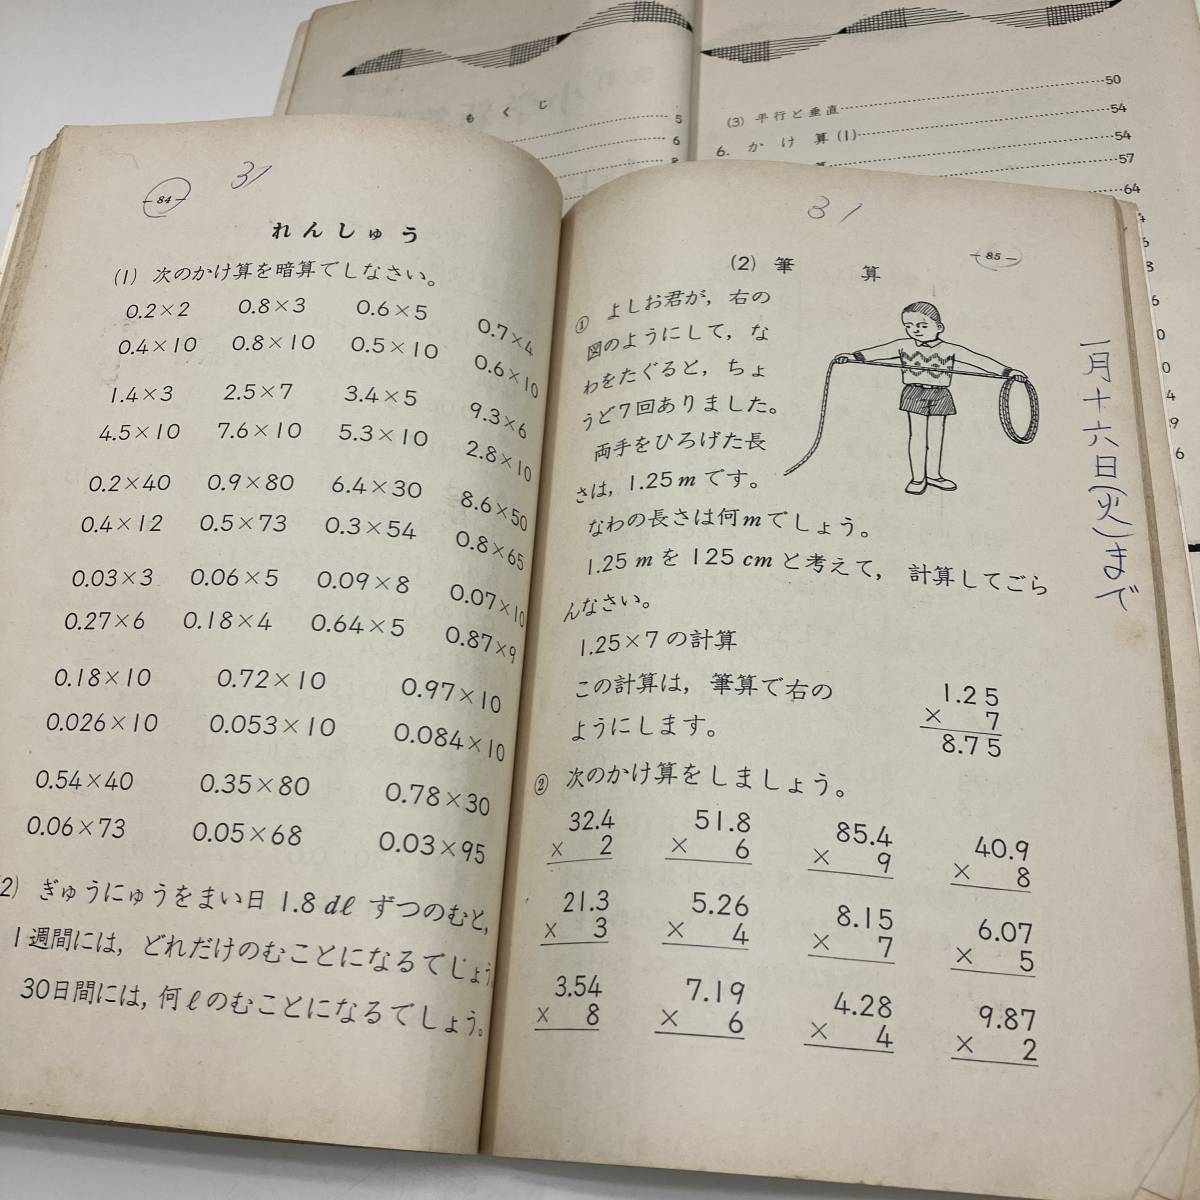 もくじ
5
6
8
(3) 平行と垂直 50
54
6. かけ算(1) 54
57
算 64
31
-84-
れんしゅう
(1) 次のかけ算を暗算でしなさい。
0.2×2 0.8×3 0.6×5 0.7×4
0.4×10 0.8×10 0.5×10 0.6×10
1.4×3 2.5×7 3.4×5 9.3×6
4.5×10 7.6×10 5.3×10 2.8×10
0.2×40 0.9×80 6.4×30 8.6×50
0.4×12 0.5×73 0.3×54 0.8×65
0.03×3 0.06×5 0.09×8 0.07×10
0.27×6 0.18×4 0.64×5 0.87×9
0.18×10 0.72×10 0.97×10
0.026×10 0.053×10 0.084×10
0.54×40 0.35×80 0.78×30
0.06×73 0.05×68 0.03×95
2) ぎゅうにゅうをまい日1.8dℓずつのむと,
1週間には, どれだけのむことになるでしょう。
30日間には, 何ℓのむことになるでしょう。
31
-85-
(2) 筆算
① よしお君が, 右の
図のようにして, な
わをたぐると, ちょ
うど7回ありました。
両手をひろげた長
さは, 1.25mです。
なわの長さは何mでしょう。
1.25mを125cmと考えて, 計算してごら
んなさい。
1.25×7の計算
この計算は, 筆算で右の
ようにします。
1.25
× 7
8.75
② 次のかけ算をしましょう。
32.4 51.8 85.4 40.9
× 2 × 6 × 9 × 8
21.3 5.26 8.15 6.07
× 3 × 4 × 7 × 5
3.54 7.19 4.28 9.87
× 8 × 6 × 4 × 2
一月十六日(火)まで